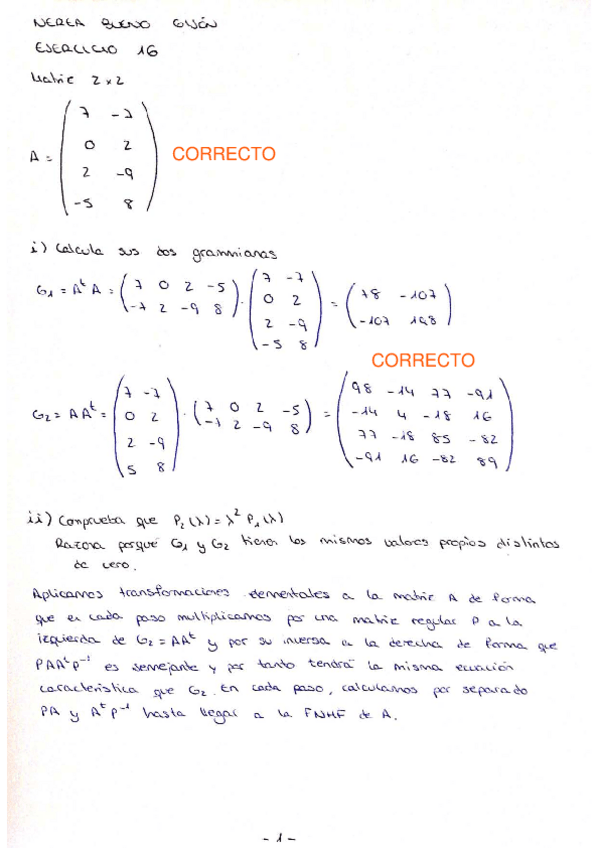 NEREA BUENO GIJÓN
EJERCICIO 16
Matriz 2x2
A = ( 7 -7
0 2
2 -9
-5 8 ) CORRECTO
i) Calcula sus dos grammianas
G1 = A^t A = ( 7 0 2 -5
-7 2 -9 8 ) · ( 7 -7
0 2
2 -9
-5 8 ) = ( 78 -107
-107 198 )
CORRECTO
G2 = AA^t = ( 7 -7
0 2
2 -9
5 8 ) · ( 7 0 2 -5
-7 2 -9 8 ) = ( 98 -14 77 -91
-14 4 -18 16
77 -18 85 -82
-91 16 -82 89 )
ii) Comprueba que P2(λ) = λ^2 P1(λ)
Razona porqué G1 y G2 tienen los mismos valores propios distintos
de cero.
Aplicamos transformaciones elementales a la matriz A de forma
que en cada paso multiplicamos por una matriz regular P a la
izquierda de G2 = AA^t y por su inversa a la derecha de forma que
PAA^tP^-1 es semejante y por tanto tendrá la misma ecuación
característica que G2. En cada paso, calculamos por separado
PA y A^tP^-1 hasta llegar a la FNHF de A.
- 1 -